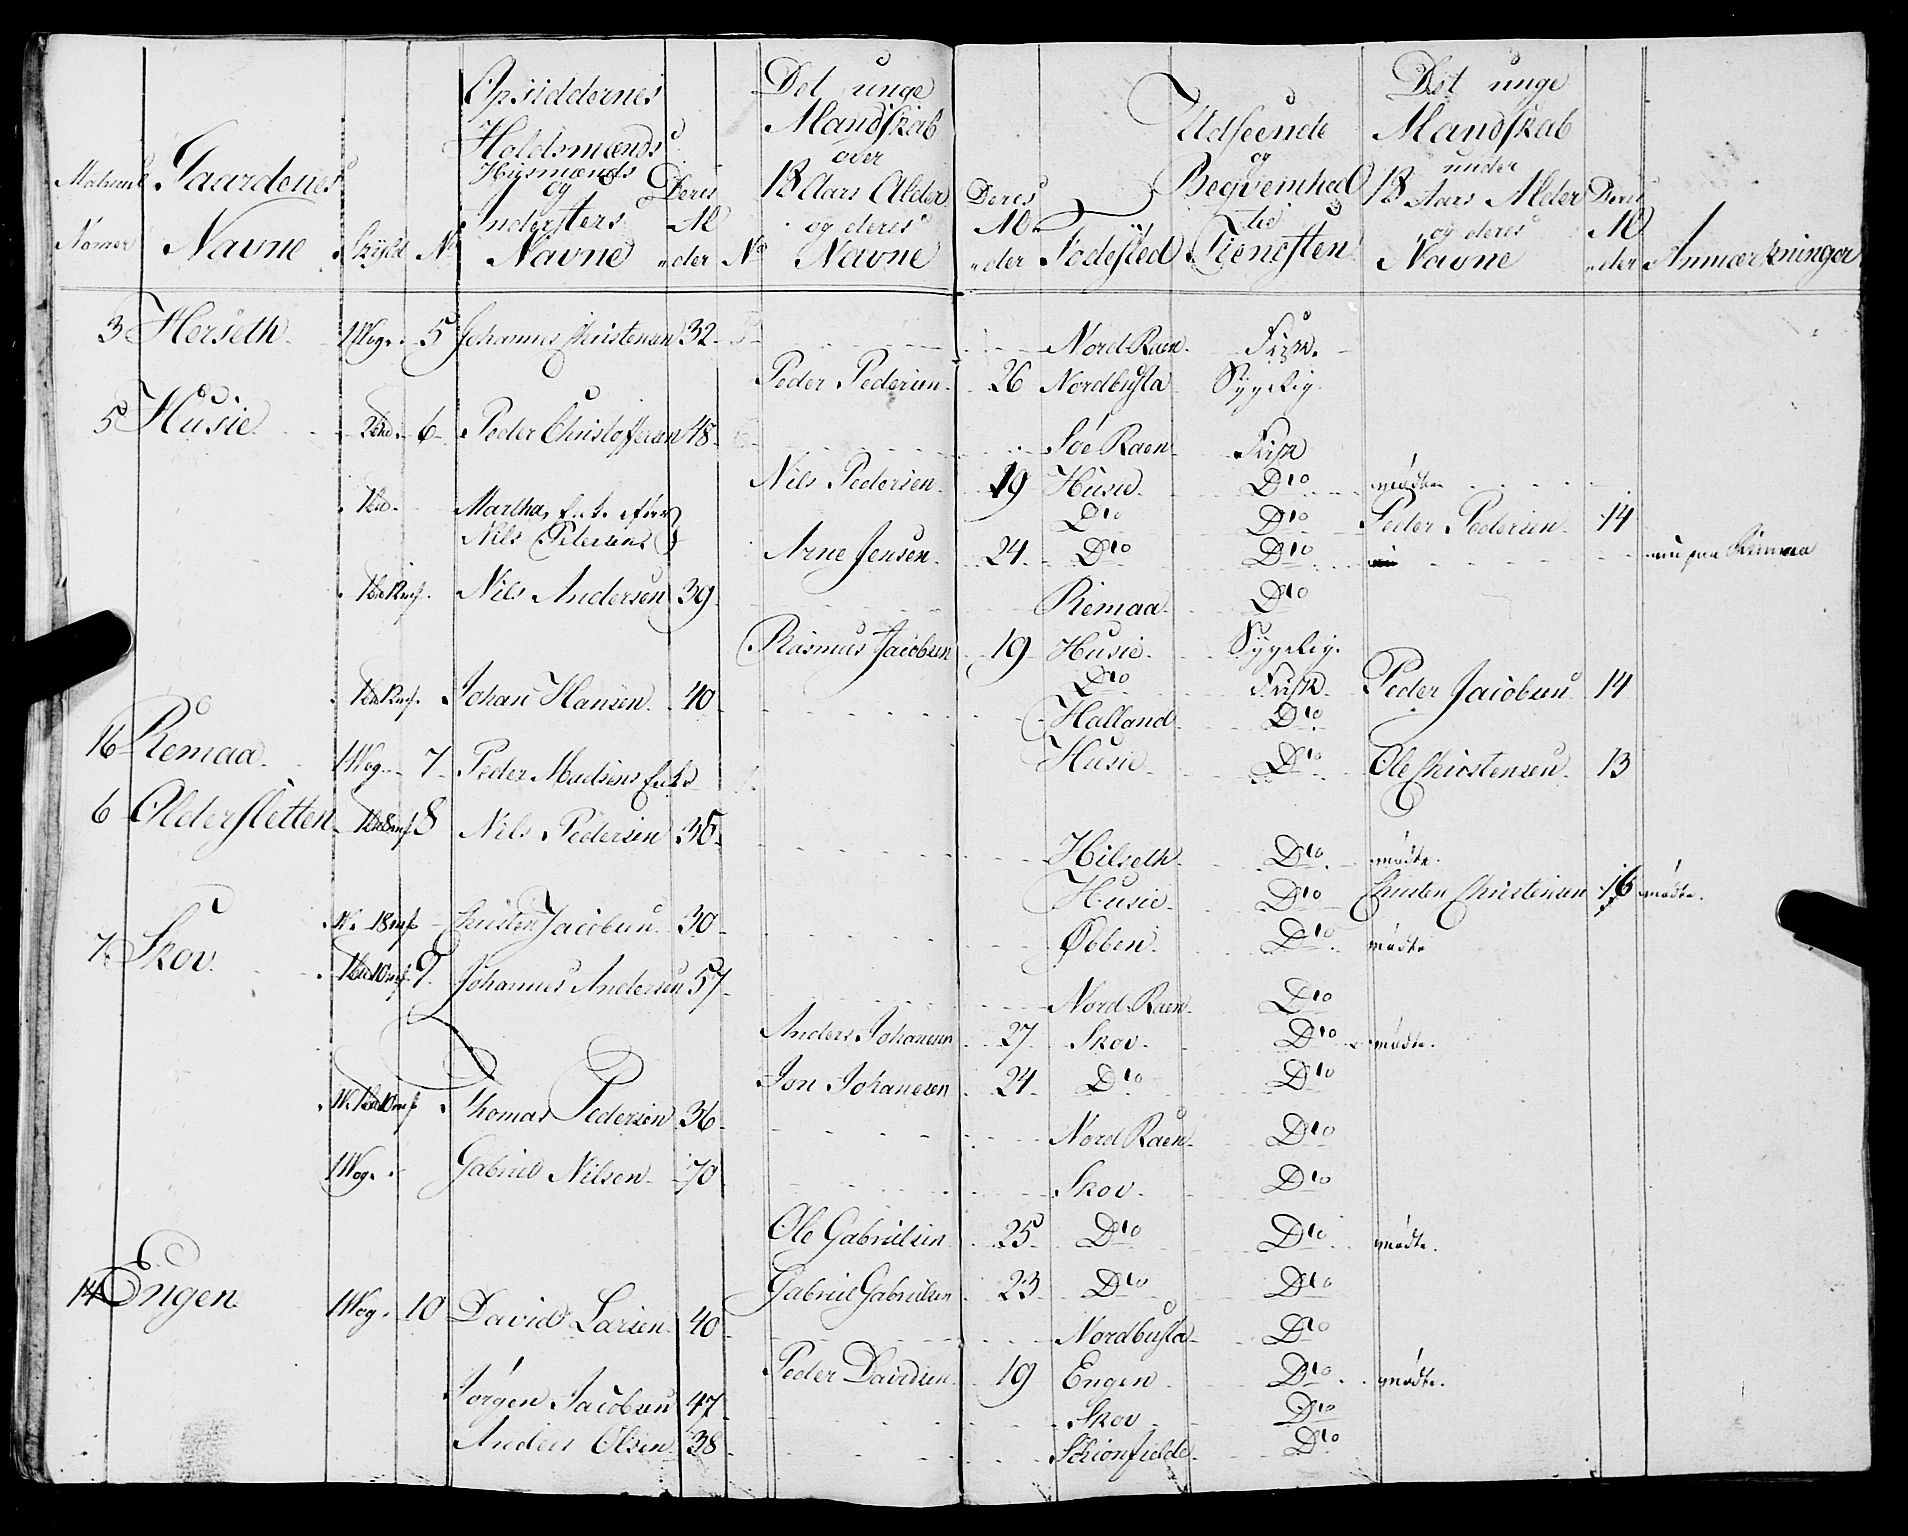 Matricul Nomer
Gaardenes Navne
Skyld
No
Opsiddernes Holdsmænds Husmænds og Indersters Navne
Deres Al der
No
Det unge Mandskab over 18 Aars Alder og deres Navne
Deres Al der
Fødested
Udseende og Beqvemhed til Tienesten
Det unge Mandskab under 18 Aars Alder og deres Navne
Deres Al der
Anmærkninger
3 Herseth 1 Wog 5 Johannes Christensen 32 Nord Raen Frisk
Peder Pedersen 26 Nordbusta Sygelig
5 Husie 6 Peder Christoffersen 48 Søe Raen Frisk
Nils Pedersen 19 Husie Dto mødte
Martha, Nils Pedersens Dto Dto Peder Pedersen 14
Arne Jensen 24 Dto Dto
Nils Andersen 39 Remaa Dto
Rasmus Jacobsen 19 Husie Sygelig
Dto Frisk Peder Jacobsen 14
Johan Hansen 40 Halland Dto
16 Remaa 1 Wog 7 Peder Madsens Enke Husie Dto Ole Christensen 13
6 Oldersletten 8 Nils Pedersen 35 Hilseth Dto mødte
Husie Dto Christen Christensen 16 mødte
Christen Jacobsen 30 Øeben Dto mødte
7 Skov 9 Johannes Andersen 57 Nord Raen Dto
Anders Johansen 27 Skov Dto mødte
Jon Johanesen 24 Dto Dto
Thomas Pedersen 36 Nord Raen Dto
1 Wog Gabriel Nilsen 70 Skov Dto
Ole Gabrielsen 25 Dto Dto mødte
Gabriel Gabrielsen 23 Dto Dto
14 Engen 1 Wog 10 David Larsen 40 Nordbusta Dto
Peder Davidsen 19 Engen Dto mødte
Jørgen Jacobsen 47 Skov Dto
Anders Olsen 38 Schionfielde Dto